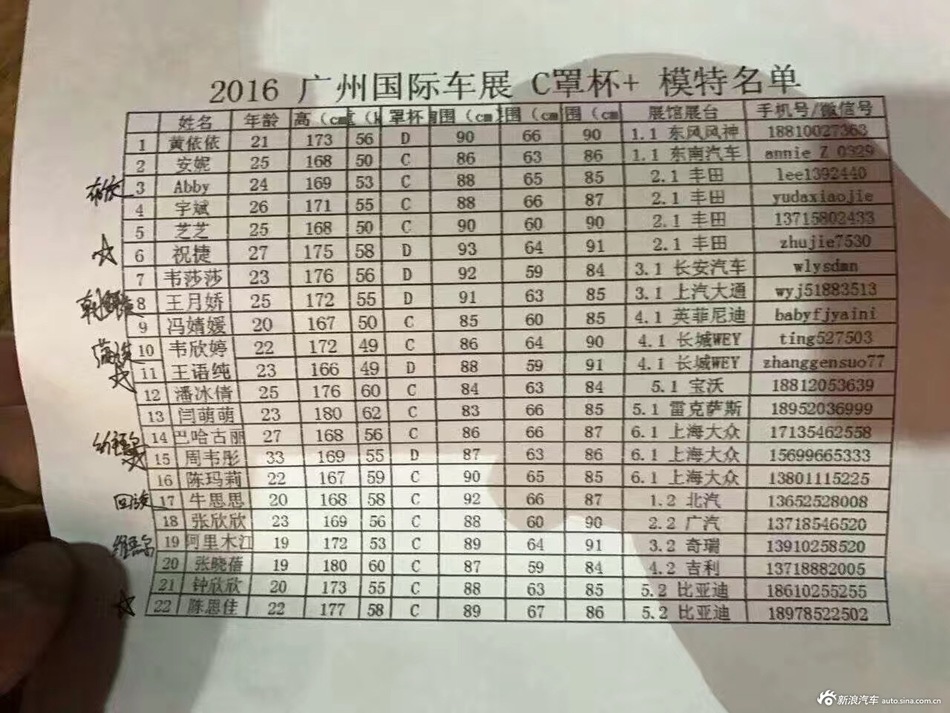 2016 广州国际车展 C罩杯+ 模特名单
姓名 年龄 高（cm 罩杯 围（cm 围（cm 围（cm 展馆展台 手机号/微信号
1 黄依依 21 173 56 D 90 66 90 1.1 东风风神 18810027363
2 安妮 25 168 50 C 86 63 86 1.1 东南汽车 annie_Z_0329
3 Abby 24 169 53 C 88 65 85 2.1 丰田 lee1392440
4 宇斌 26 171 55 C 88 66 87 2.1 丰田 yudaxiaojie
5 芝芝 25 168 50 C 90 60 90 2.1 丰田 13715802433
6 祝捷 27 175 58 D 93 64 91 2.1 丰田 zhujie7530
7 韦莎莎 23 176 56 D 92 59 84 3.1 长安汽车 wlysdmn
8 王月娇 25 172 55 D 91 63 85 3.1 上汽大通 wyj51883513
9 冯婧媛 20 167 50 C 85 60 85 4.1 英菲尼迪 babyfjyaini
10 韦欣婷 22 172 49 C 86 64 90 4.1 长城WEY ting527503
11 王语纯 23 166 49 D 88 59 91 4.1 长城WEY zhanggensuo77
12 潘冰倩 25 176 60 C 84 63 84 5.1 宝沃 18812053639
13 闫萌萌 23 180 62 C 83 66 85 5.1 雷克萨斯 18952036999
14 巴哈古丽 27 168 56 C 86 66 87 6.1 上海大众 17135462558
15 周韦彤 33 169 55 D 87 63 86 6.1 上海大众 15699665333
16 陈玛莉 22 167 59 C 90 65 85 6.1 上海大众 13801115225
回族 17 牛思思 20 168 58 C 92 66 87 1.2 北汽 13652528008
18 张欣欣 23 169 56 C 88 60 90 2.2 广汽 13718546520
19 阿里木江 19 172 53 C 89 64 91 3.2 奇瑞 13910258520
20 张晓蓓 19 180 60 C 87 59 84 4.2 吉利 13718882005
21 钟欣欣 20 173 55 C 88 63 85 5.2 比亚迪 18610255255
22 陈思佳 22 177 58 C 89 67 86 5.2 比亚迪 18978522502
新浪汽车 auto.sina.com.cn